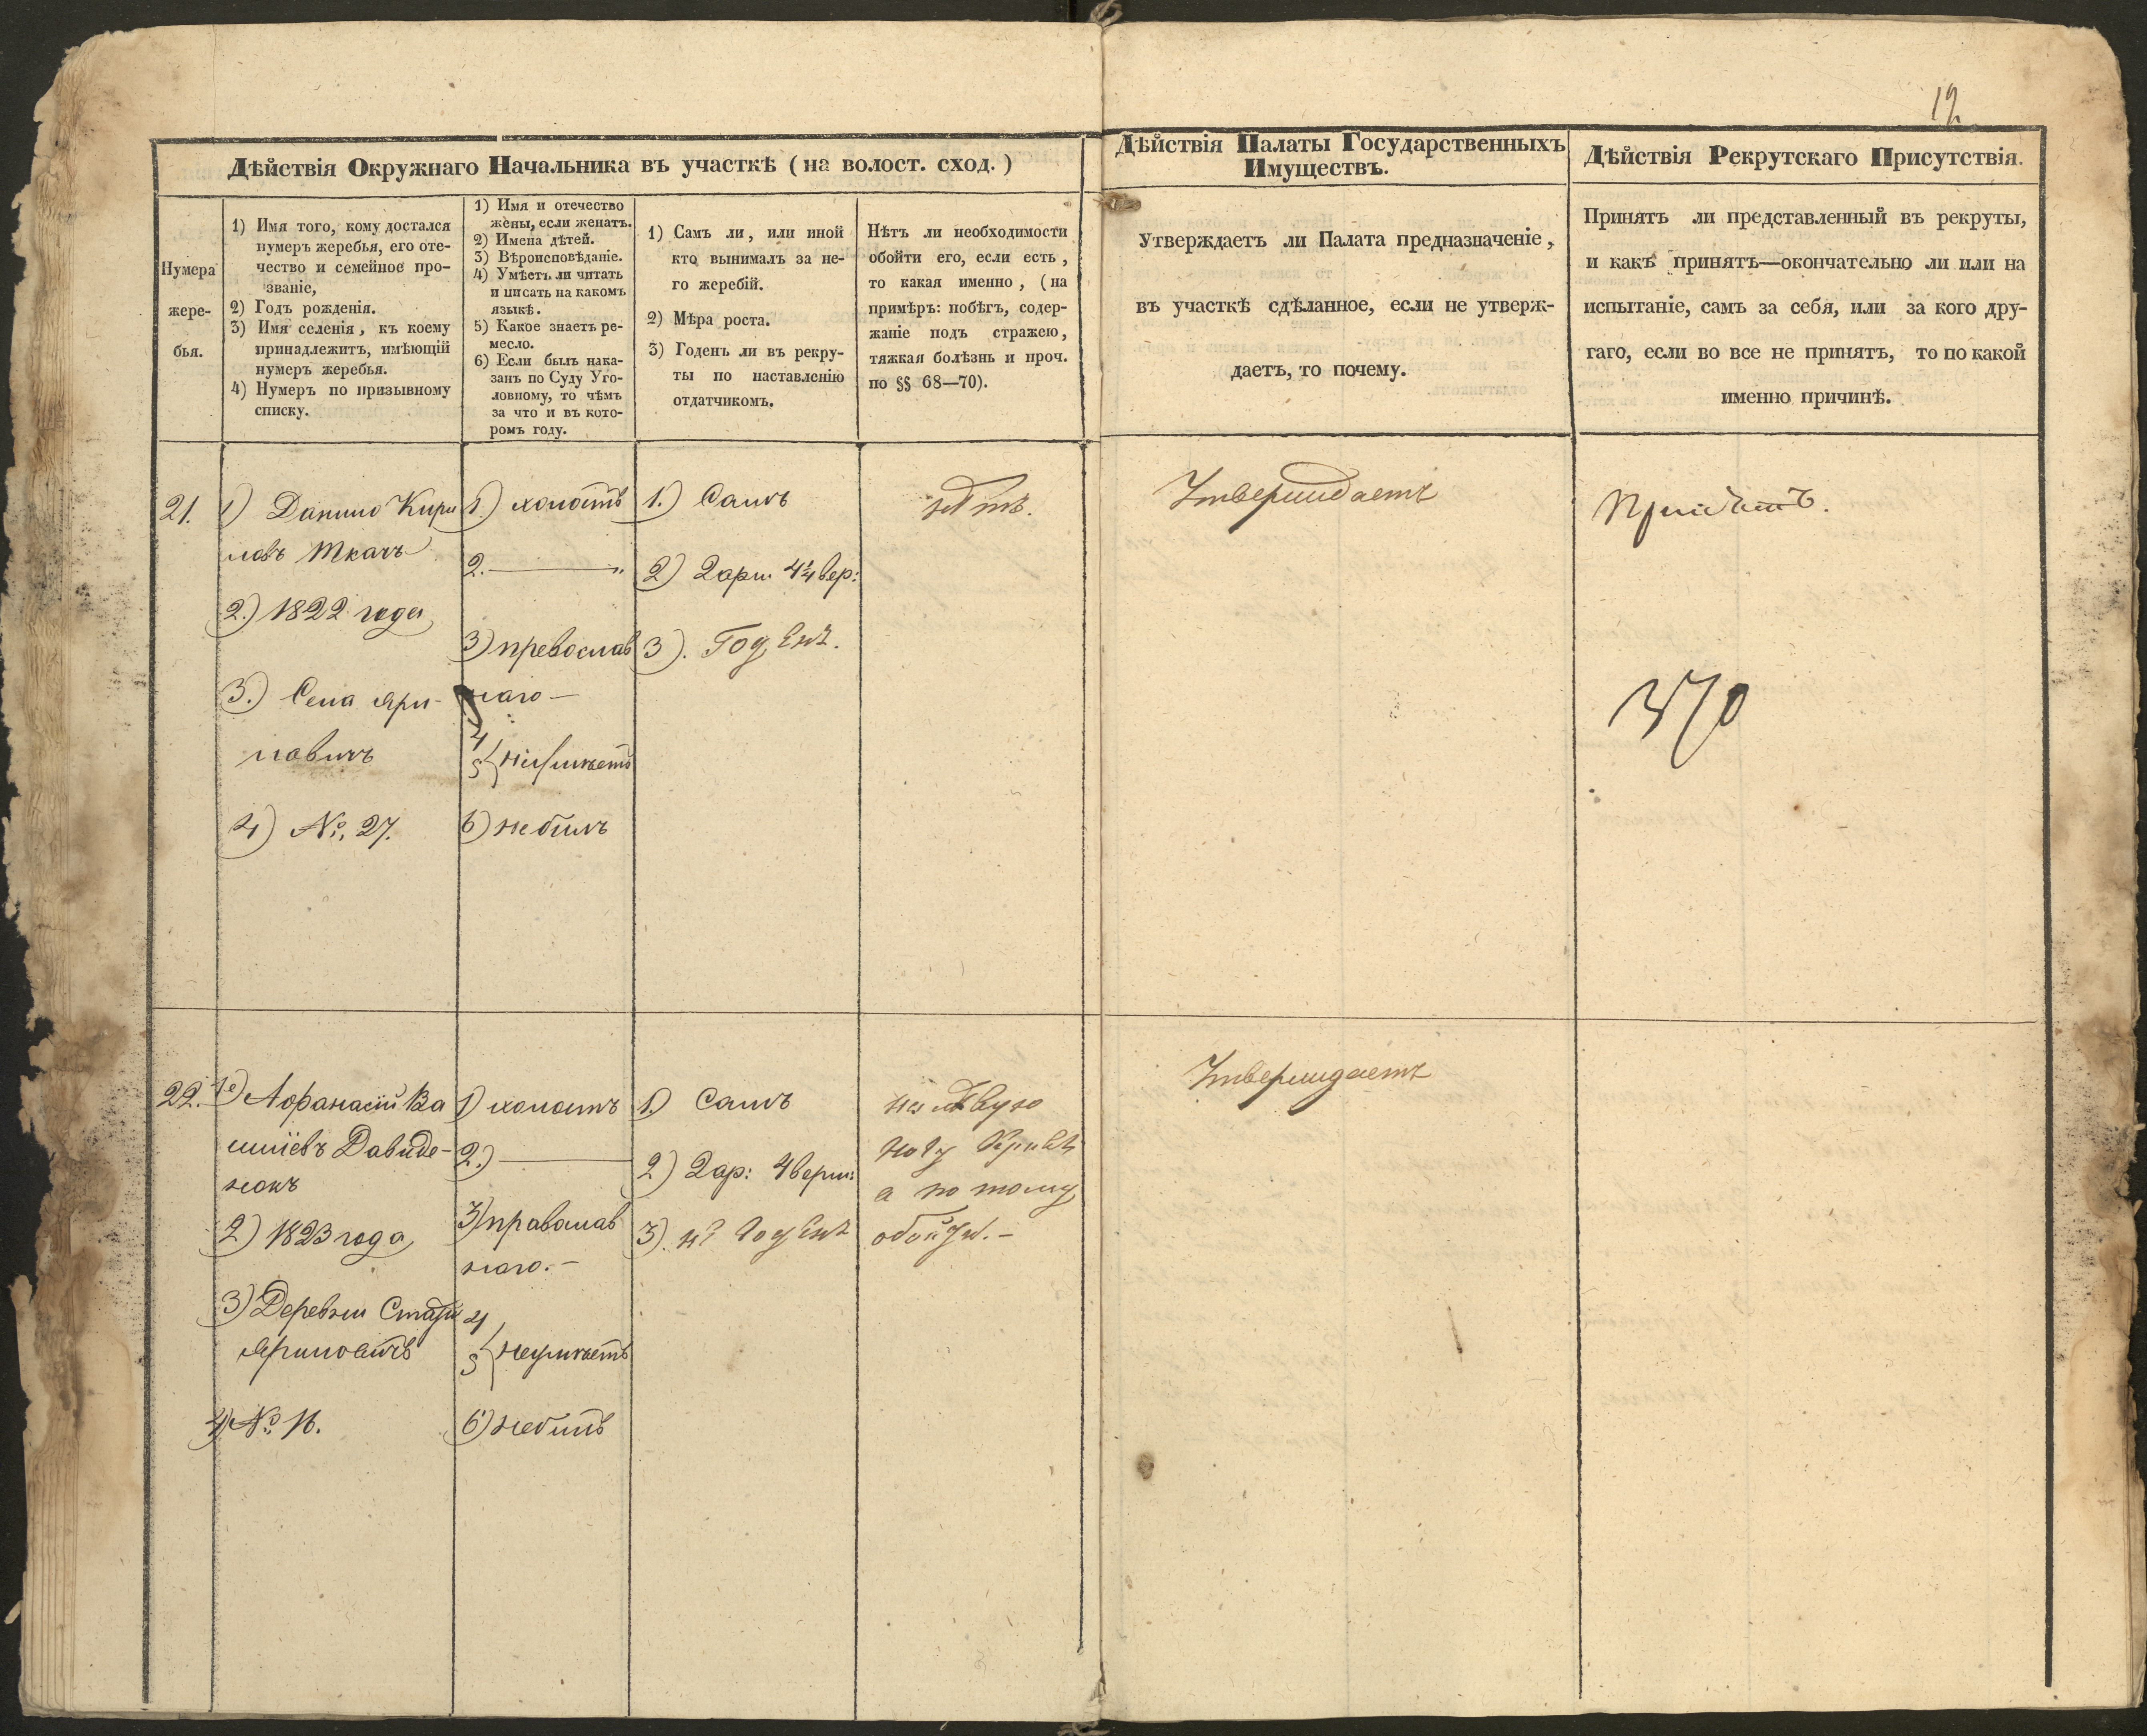 12
Дѣйствія Окружнаго Начальника въ участкѣ (на волост. сход.)
Дѣйствія Палаты Государственныхъ
Имуществъ.
Дѣйствія Рекрутскаго Присутствія.
Нумера
жере-
бья.
1) Имя того, кому достался
нумеръ жеребья, его оте-
чество и семейное про-
званіе,
2) Годъ рожденія.
3) Имя селенія, къ коему
принадлежитъ, имѣющій
нумеръ жеребья.
4) Нумеръ по призывному
списку.
1) Имя и отечество
жены, если женатъ.
2) Имена дѣтей.
3) Вѣроисповѣданіе.
4) Умѣетъ ли читать
и писать на какомъ
языкѣ.
5) Какое знаетъ ре-
месло.
6) Если былъ нака-
занъ по Суду Уго-
ловному, то чѣмъ
за что и въ кото-
ромъ году.
1) Самъ ли, или иной
кто вынималъ за не-
го жеребій.
2) Мѣра роста.
3) Годенъ ли въ рекру-
ты по наставленію
отдатчикомъ.
Нѣтъ ли необходимости
обойти его, если есть,
то какая именно, (на
примѣръ: побѣгъ, содер-
жаніе подъ стражею,
тяжкая болѣзнь и проч.
по §§ 68—70).
Утверждаетъ ли Палата предназначеніе,
въ участкѣ сдѣланное, если не утверж-
даетъ, то почему.
Принятъ ли представленный въ рекруты,
и какъ принятъ—окончательно ли или на
испытаніе, самъ за себя, или за кого дру-
гаго, если во все не принятъ, то по какой
именно причинѣ.
21.
1) Данило Кири
ловъ Ткачъ
2.) 1822 года
3.) Села Яри-
ловичъ
4) №. 27.
1) холостъ
2.
3) превослав
наго—
4
5 { неумѣетъ
6) небылъ
1.) Самъ
2) 2 арш. 4¼ вер:
3). Годенъ.
нѣтъ.
Утверждаетъ
370
22.
1е) Афанасій Ва
силіевъ Давиде-
нокъ
2) 1823 года
3) Деревни
Яриловичъ
4) №. 16.
1) холостъ
2.)
3) православ
наго.—
4
5 { неумѣетъ
6) небылъ
1.) Самъ
2) 2 ар: 4 верш:
3). не годенъ
на лѣвую
ногу
а по тому
Утверждаетъ